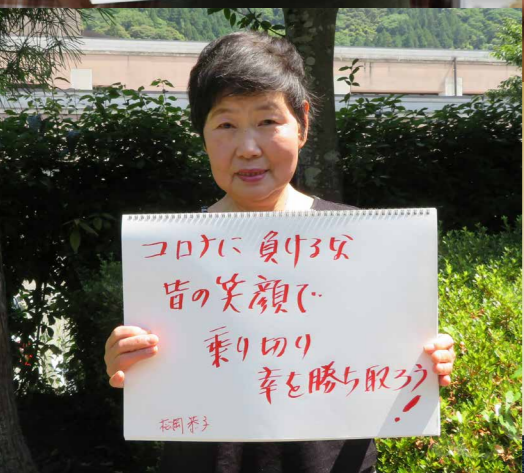 コロナに負けるな
皆の笑顔で
乗り切り
幸を勝ち取ろう!
松岡恭子